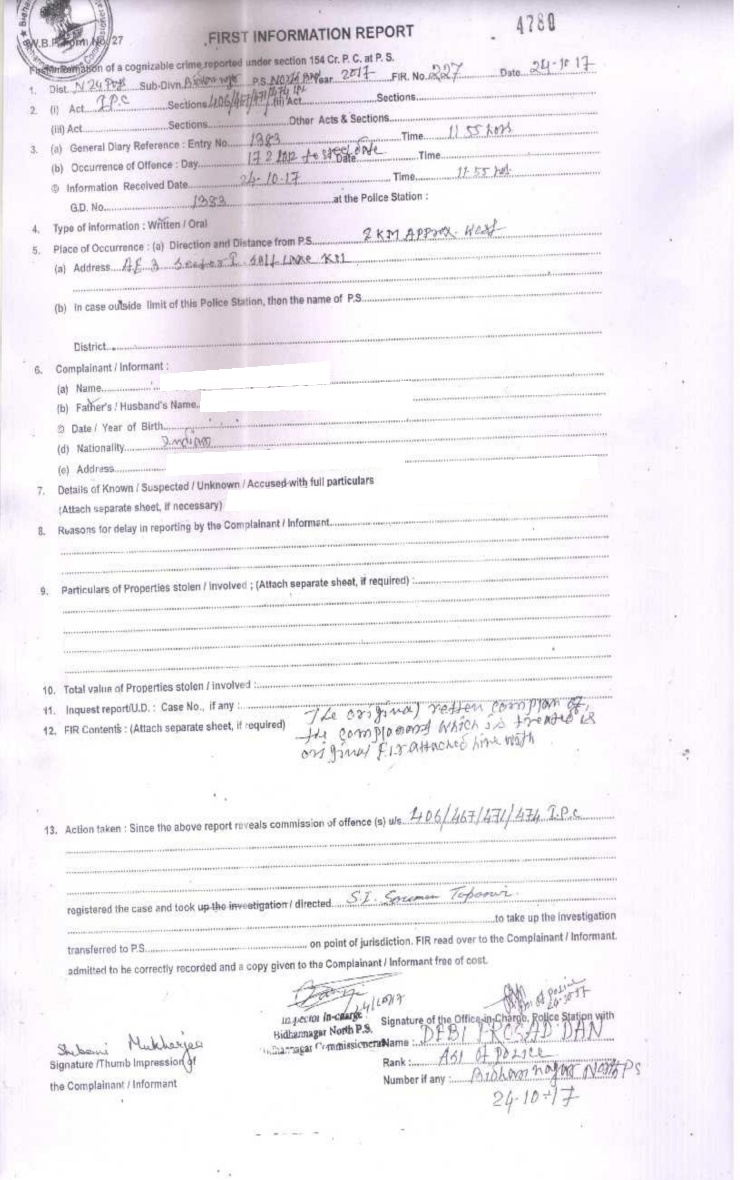 4780
W.B.P. Form No. 27
FIRST INFORMATION REPORT
First Information of a cognizable crime reported under section 154 Cr. P. C. at P. S.
1. Dist. N 24 Pgs Sub-Divn. P.S. North Year 2017 FIR. No. 227 Date 24-10-17
2. (i) Act I.P.C Sections 406/467/471/474 IPC (ii) Act Sections
(iii) Act Sections Other Acts & Sections
3. (a) General Diary Reference : Entry No 1383 Time 11 55 hrs
(b) Occurrence of Offence : Day 17 2 2012 to Date Time
Information Received Date 24-10-17 Time 11-55 hrs
G.D. No. 1383 at the Police Station :
4. Type of information : Written / Oral
5. Place of Occurrence : (a) Direction and Distance from P.S. 2 KM APPROX. West
(a) Address AE 3 Sector I Salt Lake
(b) In case outside limit of this Police Station, then the name of P.S.
District
6. Complainant / Informant :
(a) Name
(b) Father's / Husband's Name
Date / Year of Birth
(d) Nationality Indian
(e) Address
7. Details of Known / Suspected / Unknown / Accused with full particulars
(Attach separate sheet, if necessary)
8. Reasons for delay in reporting by the Complainant / Informant
9. Particulars of Properties stolen / Involved ; (Attach separate sheet, if required) :
10. Total value of Properties stolen / involved :
11. Inquest report/U.D. : Case No., if any :
12. FIR Contents : (Attach separate sheet, if required) The original
the which is treated
original F.I.R attached
13. Action taken : Since the above report reveals commission of offence (s) u/s. 406/467/471/474 I.P.C
registered the case and took up the investigation / directed S.I.
to take up the investigation
transferred to P.S. on point of jurisdiction. FIR read over to the Complainant / Informant.
admitted to be correctly recorded and a copy given to the Complainant / Informant free of cost.
24/10/17
of police
24-10-17
Inspector In-charge
Bidhannagar North P.S.
Bidhannagar Commissionerate
Signature of the Office-in-Charge, Police Station with
Name : DEBI PRASAD DAN
Rank : ASI of police
Number if any : Bidhannagar North PS
24-10-17
Mukherjee
Signature /Thumb Impression of
the Complainant / Informant